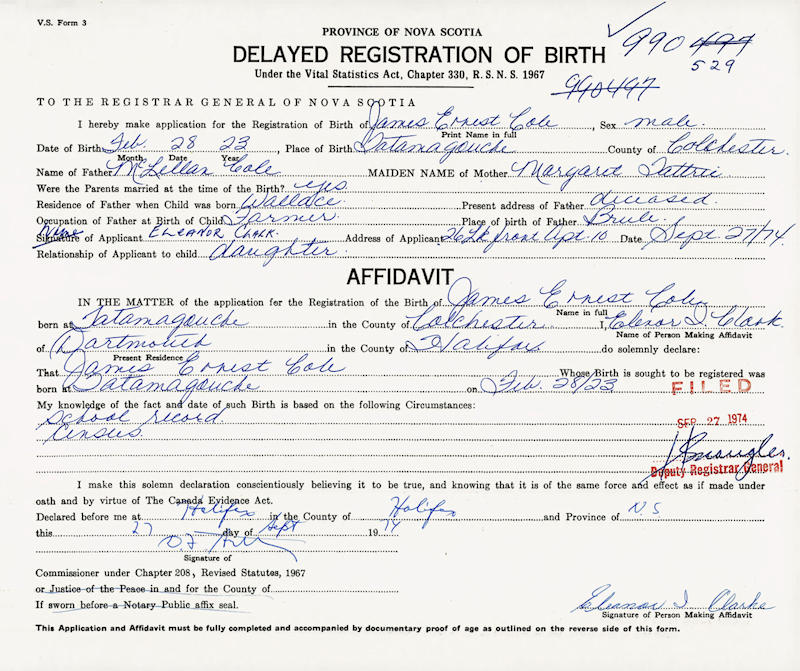 V.S. Form 3
PROVINCE OF NOVA SCOTIA
DELAYED REGISTRATION OF BIRTH
Under the Vital Statistics Act, Chapter 330, R.S.N.S. 1967
990 497
529
990497
TO THE REGISTRAR GENERAL OF NOVA SCOTIA
I hereby make application for the Registration of Birth of James Ernest Cole, Sex male.
Print Name in full
Date of Birth Feb. 28 23, Place of Birth Tatamagouche County of Colchester.
Month Date Year
Name of Father McLellan Cole MAIDEN NAME of Mother Margaret Tattrie
Were the Parents married at the time of the Birth? yes
Residence of Father when Child was born Wallace. Present address of Father deceased.
Occupation of Father at Birth of Child Farmer. Place of birth of Father Brule.
Signature of Applicant ELEANOR CLARK. Address of Applicant 26 Lk front Apt 10 Date Sept. 27/74.
Relationship of Applicant to child daughter.
AFFIDAVIT
IN THE MATTER of the application for the Registration of the Birth of James Ernest Cole
Name in full
born at Tatamagouche in the County of Colchester I, Elenor I Clark.
Name of Person Making Affidavit
of Dartmouth in the County of Halifax do solemnly declare:
Present Residence
That James Ernest Cole Whose Birth is sought to be registered was
born at Tatamagouche on Feb. 28/23
FILED
My knowledge of the fact and date of such Birth is based on the following Circumstances:
School record.
SEP 27 1974
Census.
Deputy Registrar General
I make this solemn declaration conscientiously believing it to be true, and knowing that it is of the same force and effect as if made under
oath and by virtue of The Canada Evidence Act.
Declared before me at Halifax in the County of Halifax and Province of N.S
this 27 day of Sept 1974
Signature of
Commissioner under Chapter 208, Revised Statutes, 1967
or Justice of the Peace in and for the County of
If sworn before a Notary Public affix seal.
Eleanor I Clarke
Signature of Person Making Affidavit
This Application and Affidavit must be fully completed and accompanied by documentary proof of age as outlined on the reverse side of this form.